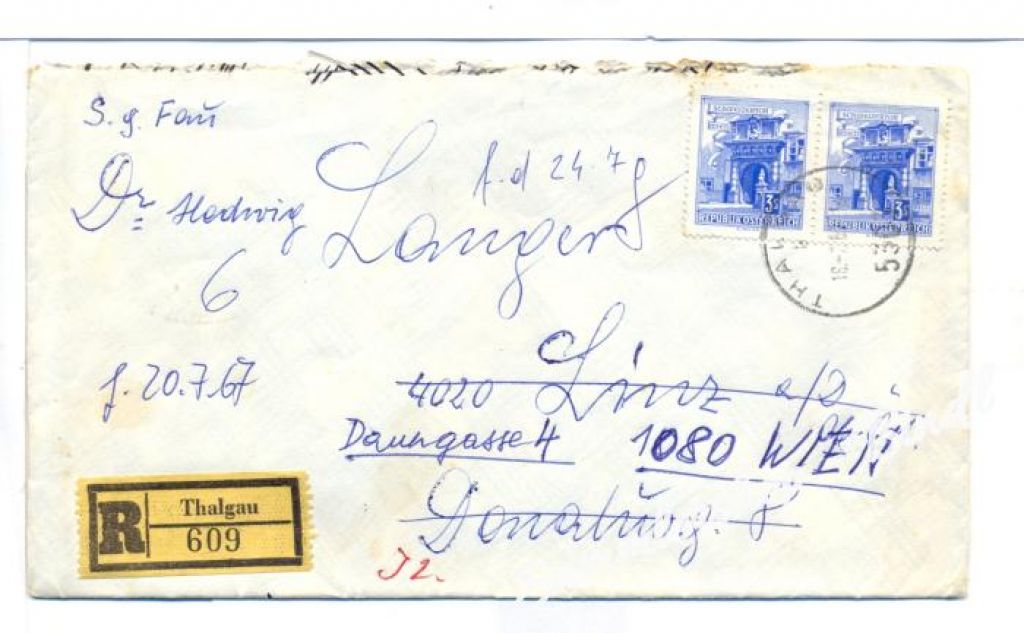 S. g. Frau
f. d 24. 7
Dr Hedwig Langer
6
REPUBLIK ÖSTERREICH 3s
REPUBLIK ÖSTERREICH 3s
THAL
18
53
f. 20.7.67
4020 Linz a/D
Daungasse 4 1080 WIEN
8
R Thalgau
609
J2.